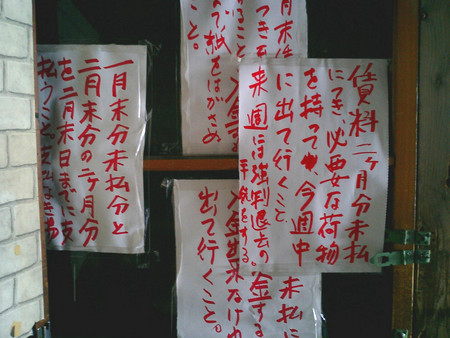 賃料二ヶ月分未払
につき、必要な荷物
を持って、今週中
に出て行くこと。
来週には強制退去の
手続をする。
月末
つき
こと
んで紙をはがさぬ
こと。
未払に
金する
入金出来なけれ
出て行くこと。
一月末分未払分と
二月末分の二ヶ月分
を二月末日までに支
払うこと支払なき場